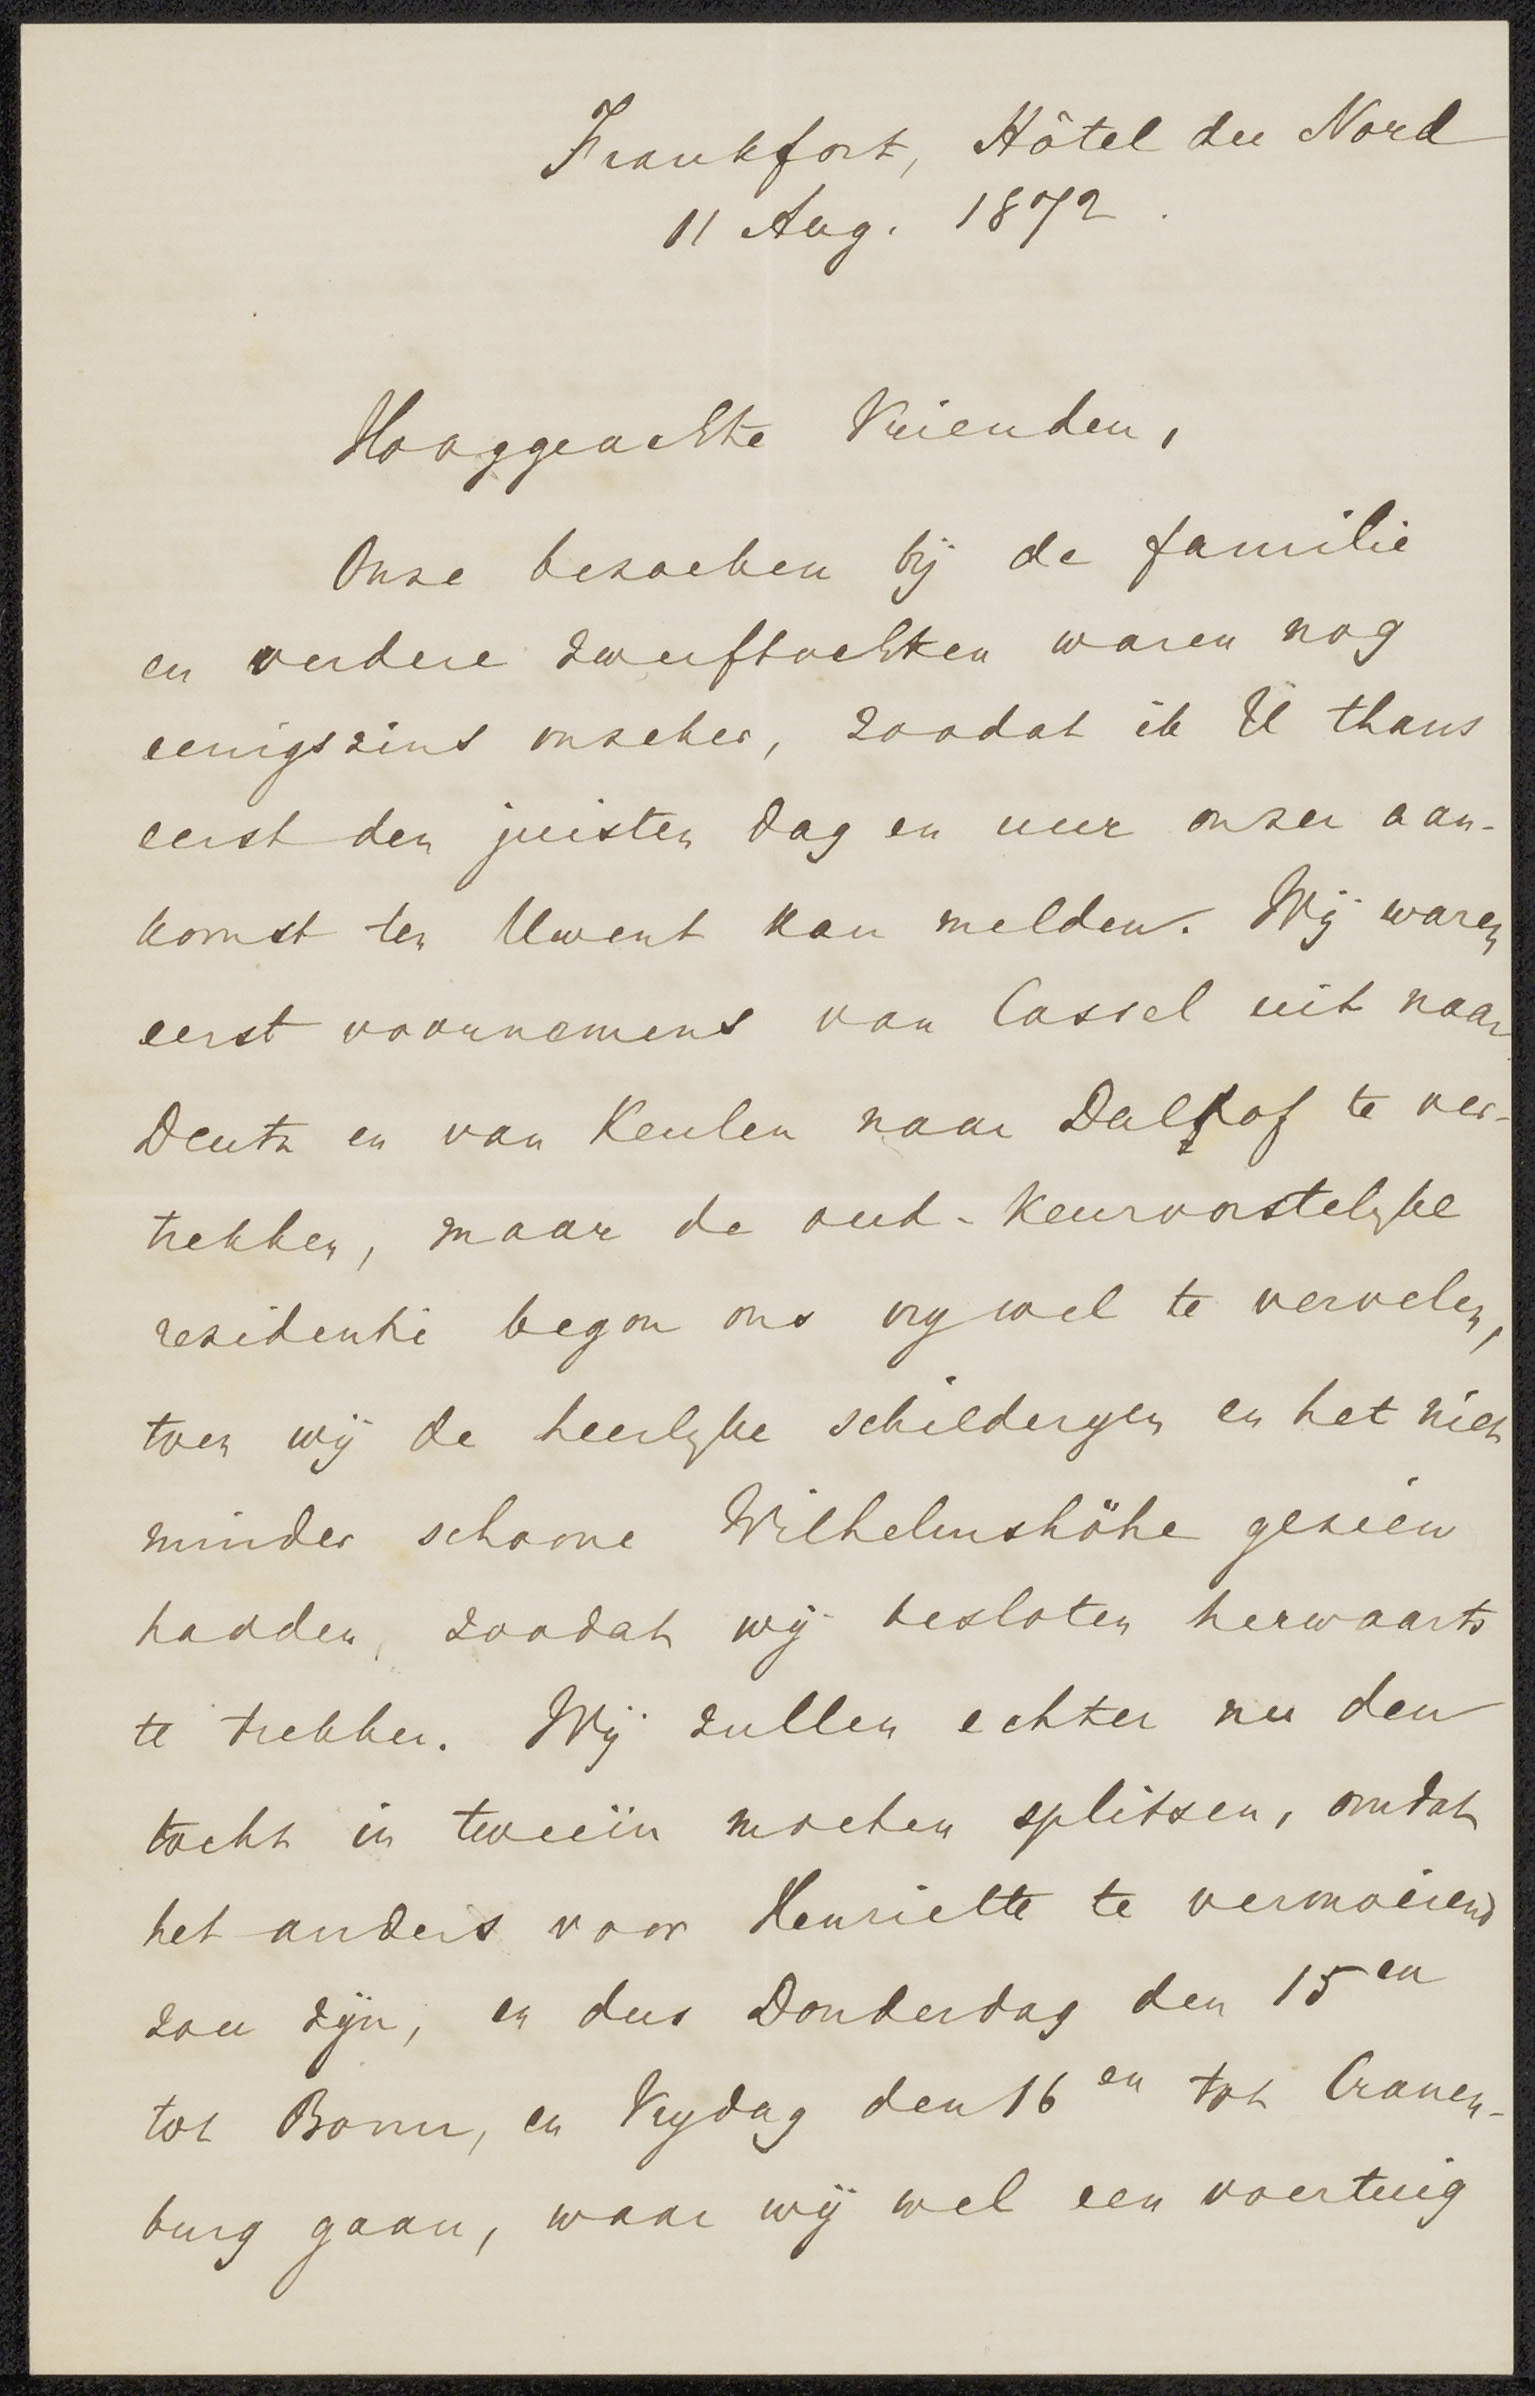 Frankfort, Hôtel du Nord
11 Aug. 1872.
Hooggeachte Vrienden,
Onze bezoeken bij de familie
en verdere zwerftochten waren nog
eenigszins onzeker, zoodat ik U thans
eerst den juisten dag en uur onzer aan-
komst ten Uwent kan melden. Wij waren
eerst voornemens van Cassel uit naar
Deutz en van Keulen naar Dalhof te ver-
trekken, maar de oud-Keurvorstelyke
residentie begon ons vry wel te vervelen,
toen wij de heerlyke schilderyen en het niet
minder schoone Wilhelmshöhe gezien
hadden, zoodat wij besloten herwaarts
te trekken. Wij zullen echter nu den
tocht in tweeën moeten splitsen, omdat
het anders voor Henriette te vermoeiend
zou zijn, en dus Donderdag den 15en
tot Bonn, en Vrydag den 16en tot Cranen-
burg gaan, waar wij wel een voertuig